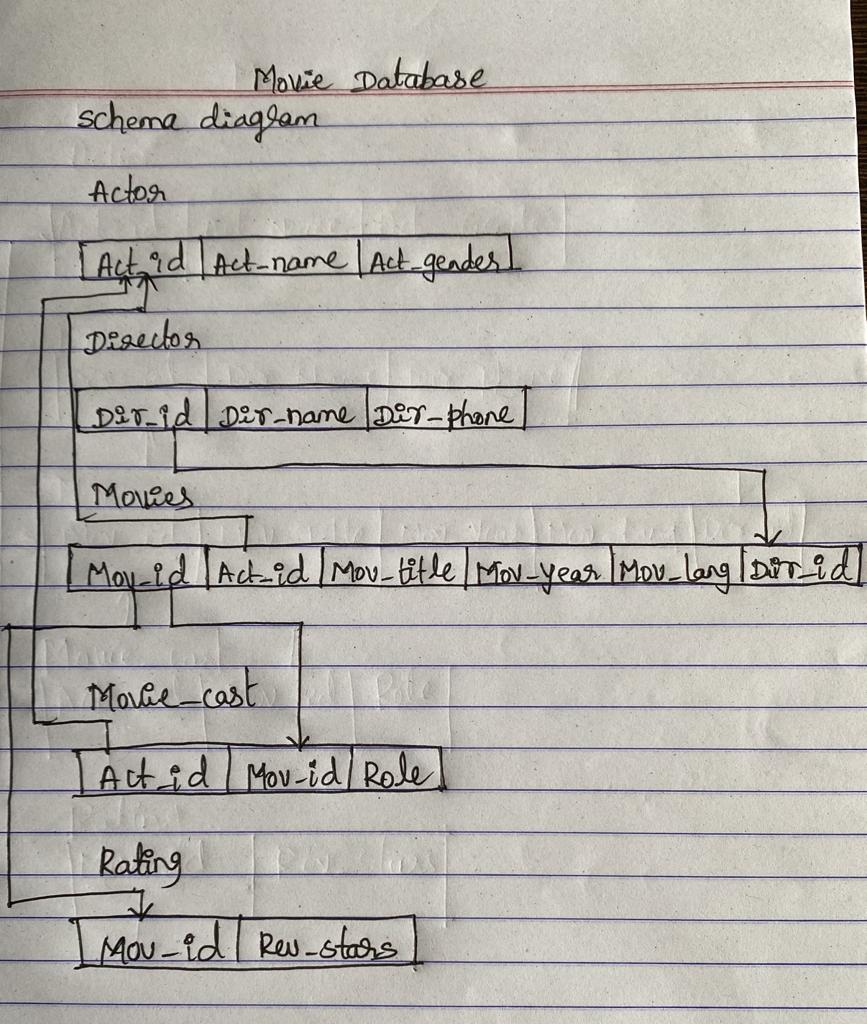 Movie Database
Schema diagram
Actor
Act_id Act_name Act_gender
Director
Dir_id Dir_name Dir_phone
Movies
Mov_id Act_id Mov_title Mov_year Mov_lang Dir_id
Movie_cast
Act_id Mov_id Role
Rating
Mov_id Rev_stars